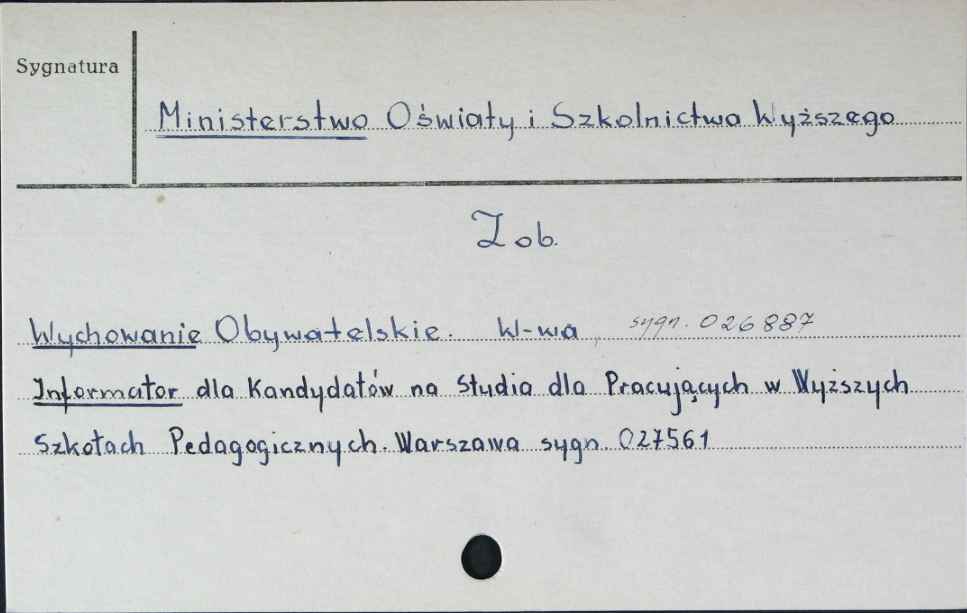 Sygnatura
Ministerstwo Oświaty i Szkolnictwa Wyższego
Zob.
Wychowanie Obywatelskie. W-wa, sygn. 026887
Informator dla Kandydatów na Studia dla Pracujących w Wyższych
Szkołach Pedagogicznych. Warszawa sygn. 027561